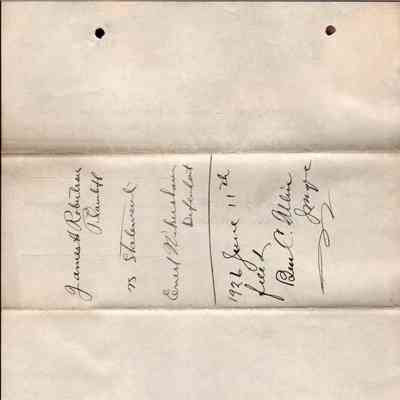 James H Robertson
Plaintiff
vs Statement
Defendant
1926 June 11th
filed
Ben C. Allin
Judge